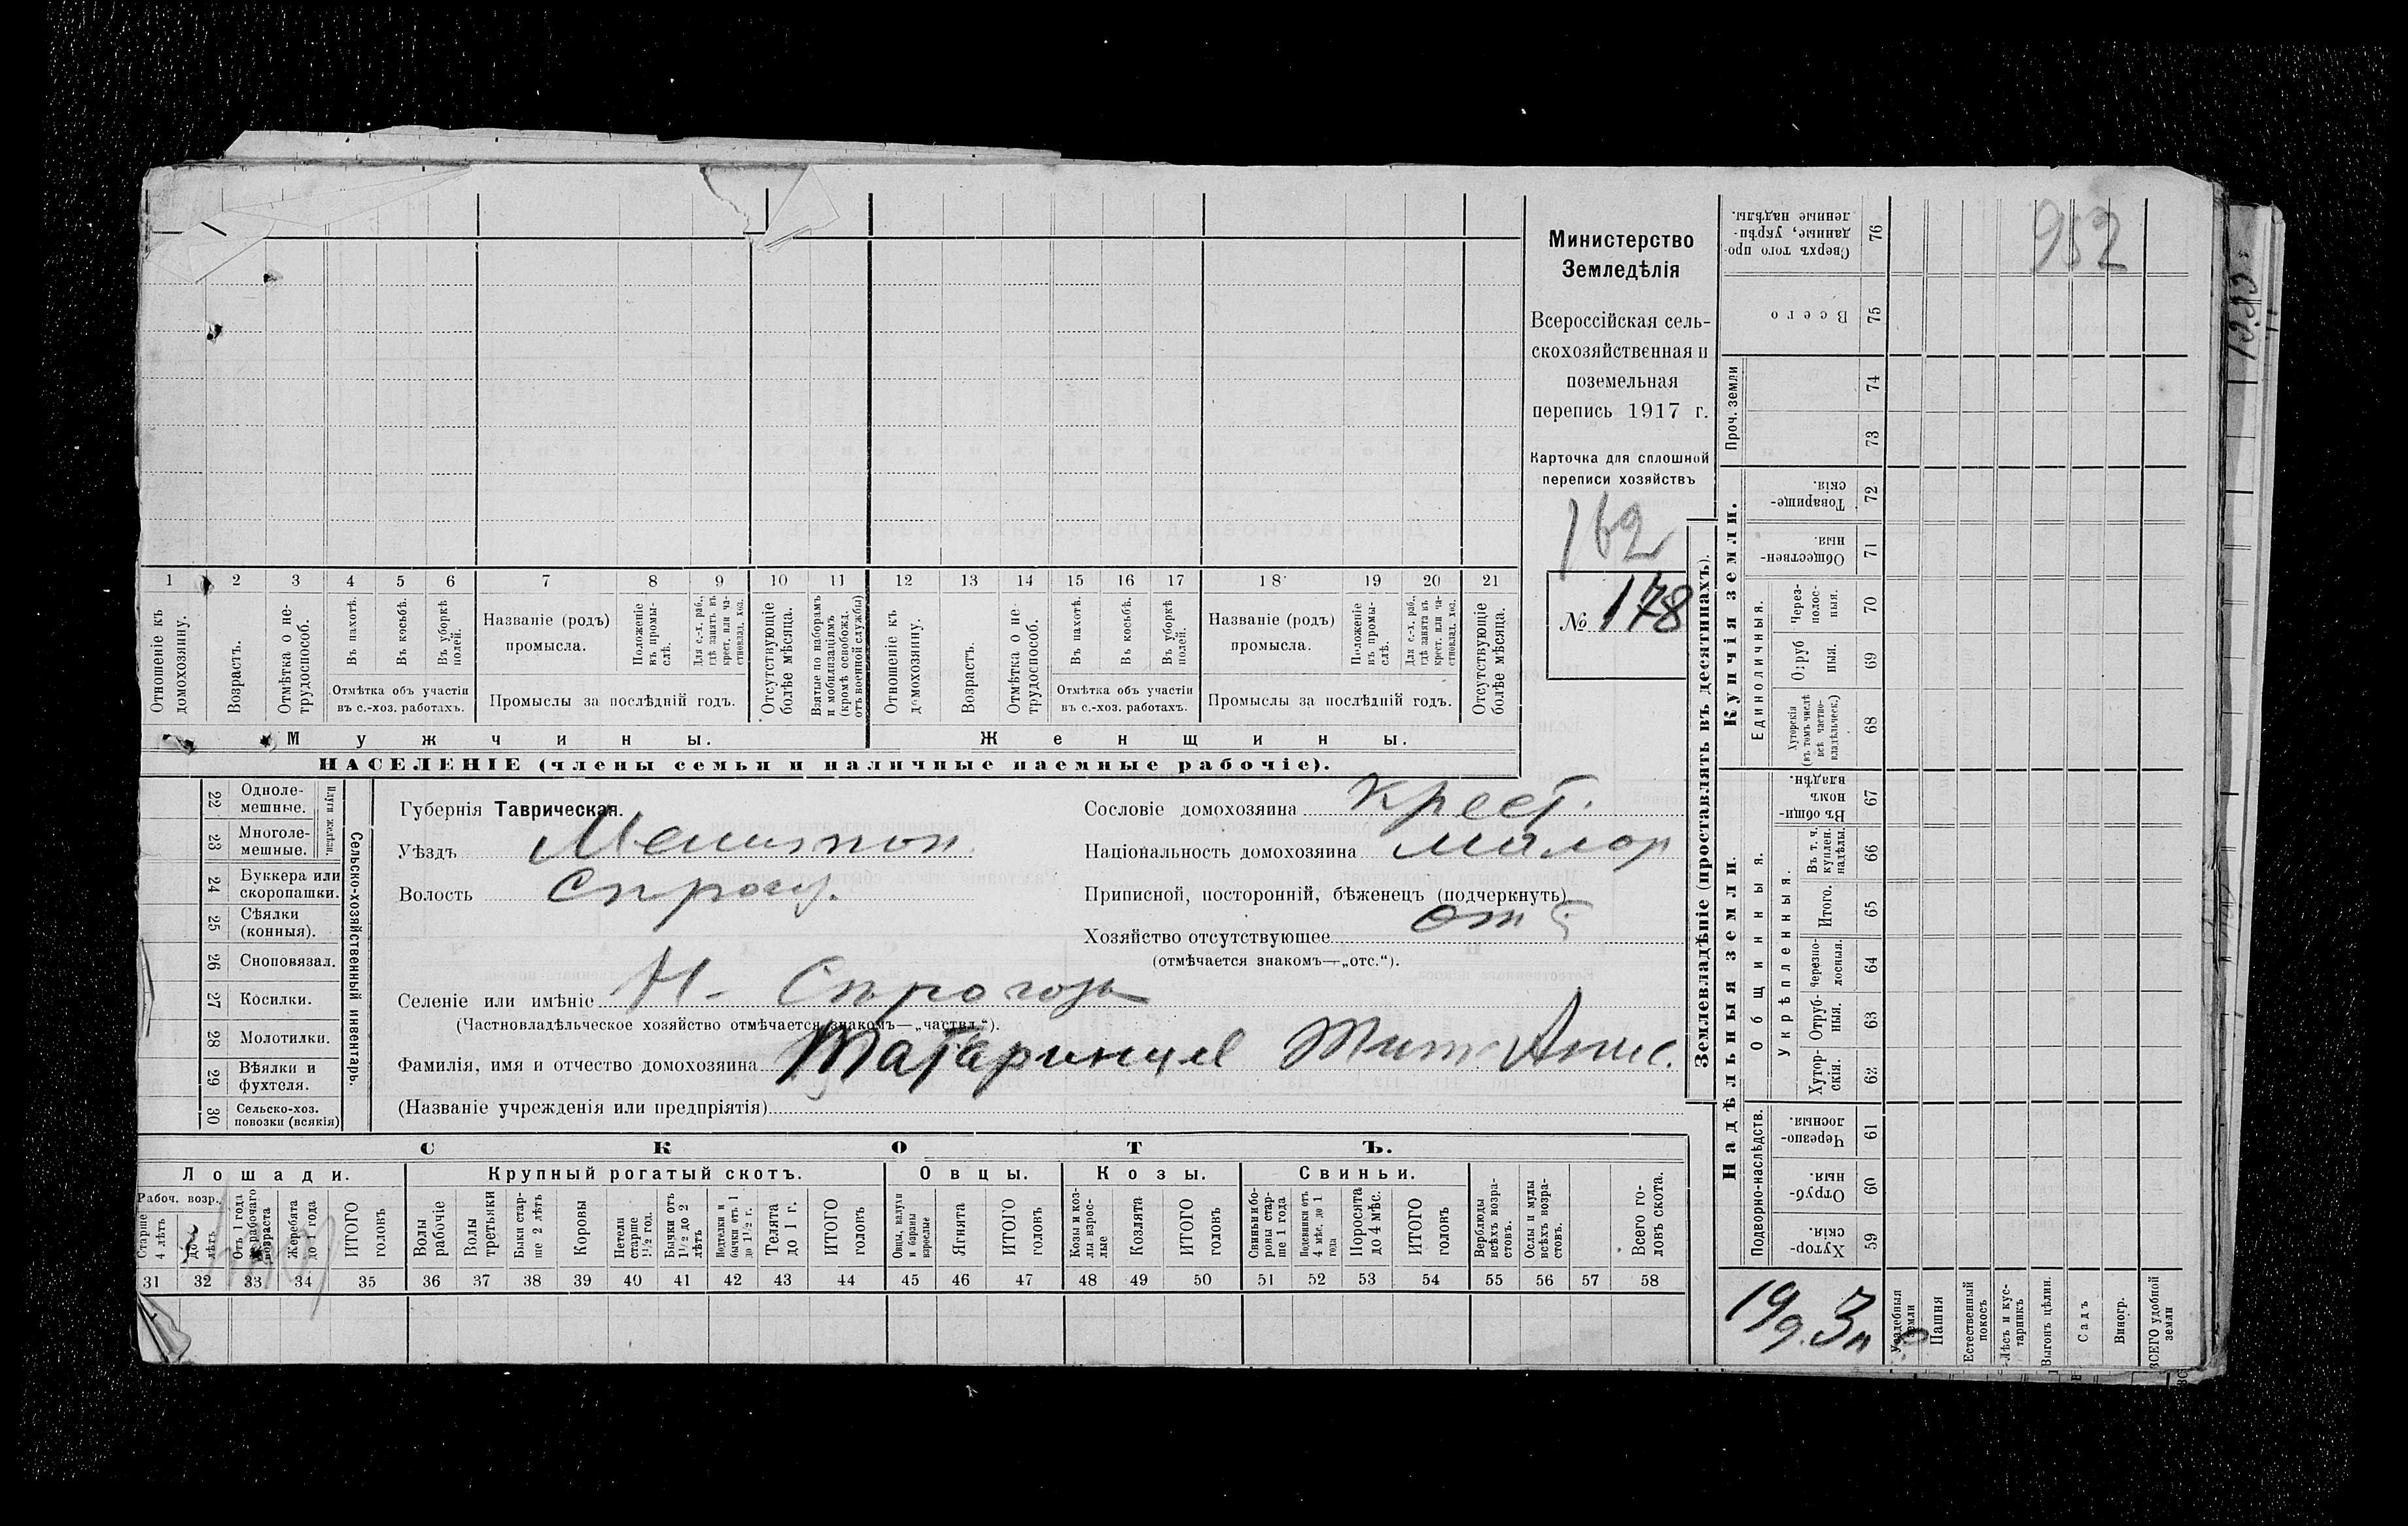 Министерство
Земледѣлія
Всероссійская сель-
скохозяйственная и
поземельная
перепись 1917 г.
Карточка для сплошной
переписи хозяйствъ
162
№ 178
1 2 3 4 5 6 7 8 9 10 11 12 13 14 15 16 17 18 19 20 21
Отношеніе къ домохозяину.
Возрастъ.
Отмѣтка о не-трудоспособ.
Въ пахотѣ.
Въ косьбѣ.
Въ уборкѣ полей.
Отмѣтка объ участіи
въ с.-хоз. работахъ.
Названіе (родъ)
промысла.
Положеніе въ промы-слѣ.
Для с.-х. раб., гдѣ занятъ въ крест. или ча-стновлад. хоз.
Промыслы за послѣдній годъ.
Отсутствующіе болѣе мѣсяца.
Взятые по наборамъ и мобилизаціямъ (кромѣ освобожд. отъ военной службы)
Отношеніе къ домохозяину.
Возрастъ.
Отмѣтка о не-трудоспособ.
Въ пахотѣ.
Въ косьбѣ.
Въ уборкѣ полей.
Отмѣтка объ участіи
въ с.-хоз. работахъ.
Названіе (родъ)
промысла.
Положеніе въ промы-слѣ.
Для с.-х. раб., гдѣ занята въ крест. или ча-стновлад. хоз.
Промыслы за послѣдній годъ.
Отсутствующіе болѣе мѣсяца.
Мужчины.
Женщины.
НАСЕЛЕНІЕ (члены семьи и наличные наемные рабочіе).
22 Одноле-мешные.
23 Многоле-мешные.
Плуги желѣзн.
24 Буккера или скоропашки.
25 Сѣялки (конныя).
26 Сноповязал.
27 Косилки.
28 Молотилки.
29 Вѣялки и фухтеля.
30 Сельско-хоз. повозки (всякія)
Сельско-хозяйственный инвентарь.
Губернія Таврическая.
Уѣздъ
Волость
Сословіе домохозяина Крест.
Національность домохозяина малор
Приписной, посторонній, бѣженецъ (подчеркнуть)
Хозяйство отсутствующее
(отмѣчается знакомъ—„отс.“).
Селеніе или имѣніе Н-
(Частновладѣльческое хозяйство отмѣчается знакомъ—„частвл.“).
Фамилія, имя и отчество домохозяина Татаринцев Тит Анис.
(Названіе учрежденія или предпріятія)
СКОТЪ.
Лошади.
Крупный рогатый скотъ.
Овцы.
Козы.
Свиньи.
Рабоч. возр.
Старше 4 лѣтъ
До лѣтъ
Отъ 1 года до рабочаго возраста
Жеребята до 1 года
ИТОГО головъ
Волы рабочіе
Волы третьяки
Быки стар-ше 2 лѣтъ
Коровы
Нетели старше 1½ год.
Бычки отъ 1½ до 2 лѣтъ
Подтелки и бычки отъ 1 до 1½ г.
Телята до 1 г.
ИТОГО головъ
Овцы, валухи и бараны взрослые
Ягнята
ИТОГО головъ
Козы и коз-лы взрос-лые
Козлята
ИТОГО головъ
Свиньи и бо-ровы стар-ше 1 года
Подсвинки отъ 4 мѣс. до 1 года
Поросята до 4 мѣс.
ИТОГО головъ
Верблюды всѣхъ возра-стовъ.
Ослы и мулы всѣхъ возра-стовъ.
Всего го-ловъ скота.
31 32 33 34 35 36 37 38 39 40 41 42 43 44 45 46 47 48 49 50 51 52 53 54 55 56 57 58
Землевладѣніе (проставлять въ десятинахъ).
Купчія земли.
Надѣльныя земли.
Сверхъ того про-данные, укрѣп-ленные надѣлы. 76
Всего 75
Проч. земли 74 73
Товарище-скія. 72
Обществен-ныя. 71
Единоличныя.
Через-полос-ныя. 70
Отруб ныя. 69
Хуторскія (въ томъ числѣ всѣ частно-владѣльческ.) 68
Общинныя.
Въ общи-номъ владѣн. 67
Укрѣпленныя.
Въ т. ч. куплен. надѣлы. 66
Итого. 65
Черезпо-лосныя. 64
Отруб-ныя. 63
Хутор-скія. 62
Подворно-наслѣдств.
Черезпо-лосныя. 61
Отруб-ныя. 60
Хутор-скія. 59
Усадебныя земли
Пашня
Естественный покосъ
Лѣсъ и кус-тарникъ
Выгонъ цѣлин.
Садъ
Виногр.
ВСЕГО удобной земли
952